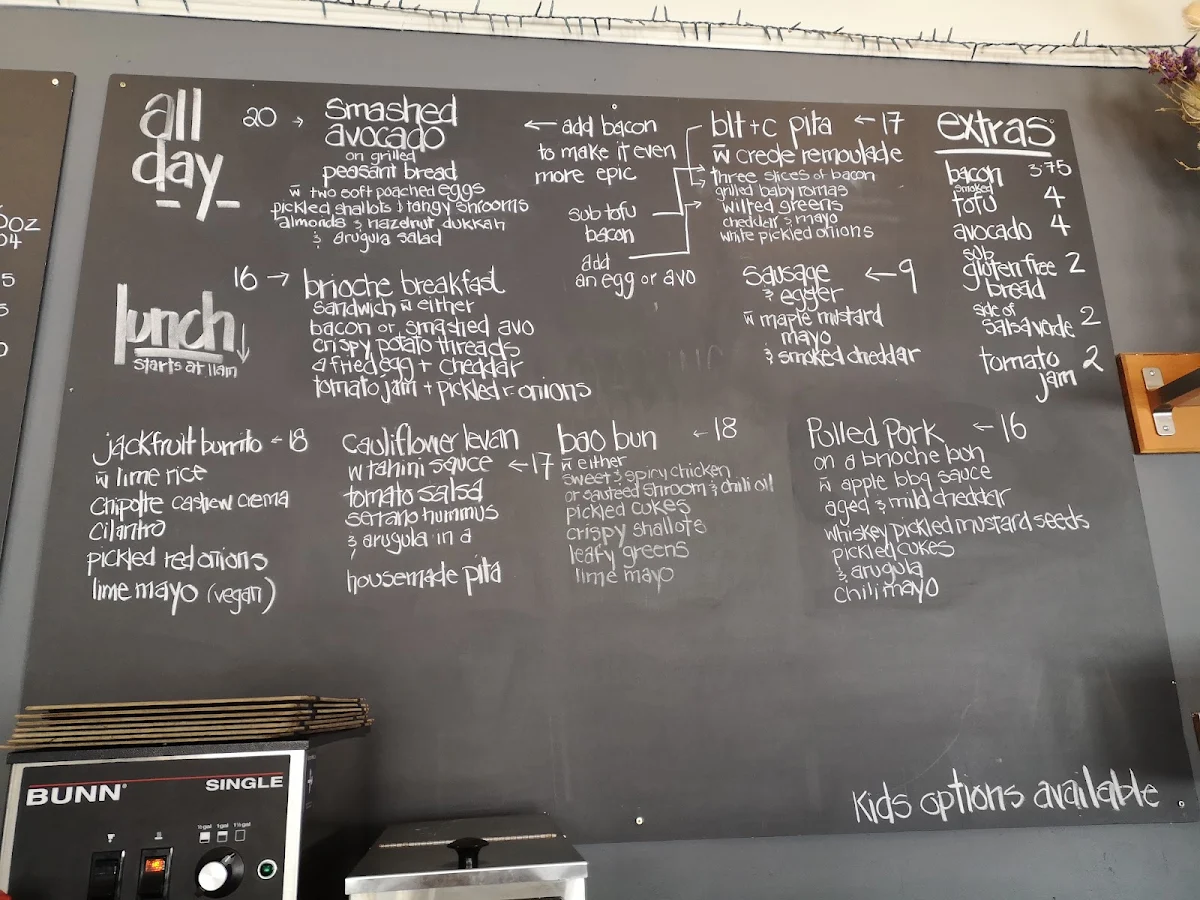 all
day
20 → smashed
avocado
on grilled
peasant bread
w̄ two soft poached eggs
pickled shallots & tangy shrooms
almonds & hazelnut dukkah
& arugula salad
← add bacon
to make it even
more epic
sub tofu
bacon
add
an egg or avo
blt+c pita ← 17
w̄ creole remoulade
three slices of bacon
grilled baby romas
wilted greens
cheddar & mayo
white pickled onions
sausage ← 9
& egger
w̄ maple mustard
mayo
& smoked cheddar
extras
bacon 3.75
smoked
tofu 4
avocado 4
sub
gluten free 2
bread
side of
salsa verde 2
tomato 2
jam
16 → brioche breakfast
sandwich w̄ either
bacon or smashed avo
crispy potato threads
a fried egg + cheddar
tomato jam + pickled r-onions
lunch ↓
starts at 11am
jackfruit burrito ← 18
w̄ lime rice
chipolte cashew crema
cilantro
pickled red onions
lime mayo (vegan)
cauliflower levan
w tahini sauce ← 17
tomato salsa
serrano hummus
& arugula in a
housemade pita
bao bun ← 18
w̄ either
sweet & spicy chicken
or sauteed shroom & chili oil
pickled cukes
crispy shallots
leafy greens
lime mayo
Pulled Pork ← 16
on a brioche bun
w̄ apple bbq sauce
aged & mild cheddar
whiskey pickled mustard seeds
pickled cukes
& arugula
chili mayo
Kids options available
BUNN® SINGLE
½ gal 1 gal 1½ gal